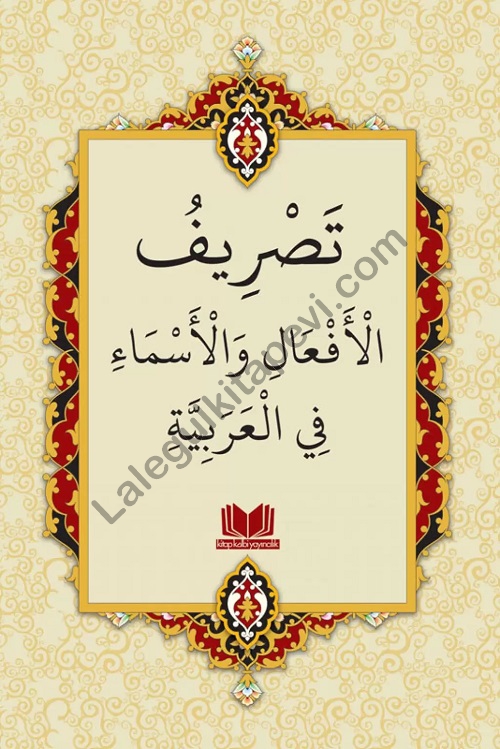 تَصْرِيفُ
الْأَفْعَالِ وَالْأَسْمَاءِ
فِي الْعَرَبِيَّةِ
Lalegulkitapevi.com
kitap kalbi yayıncılık